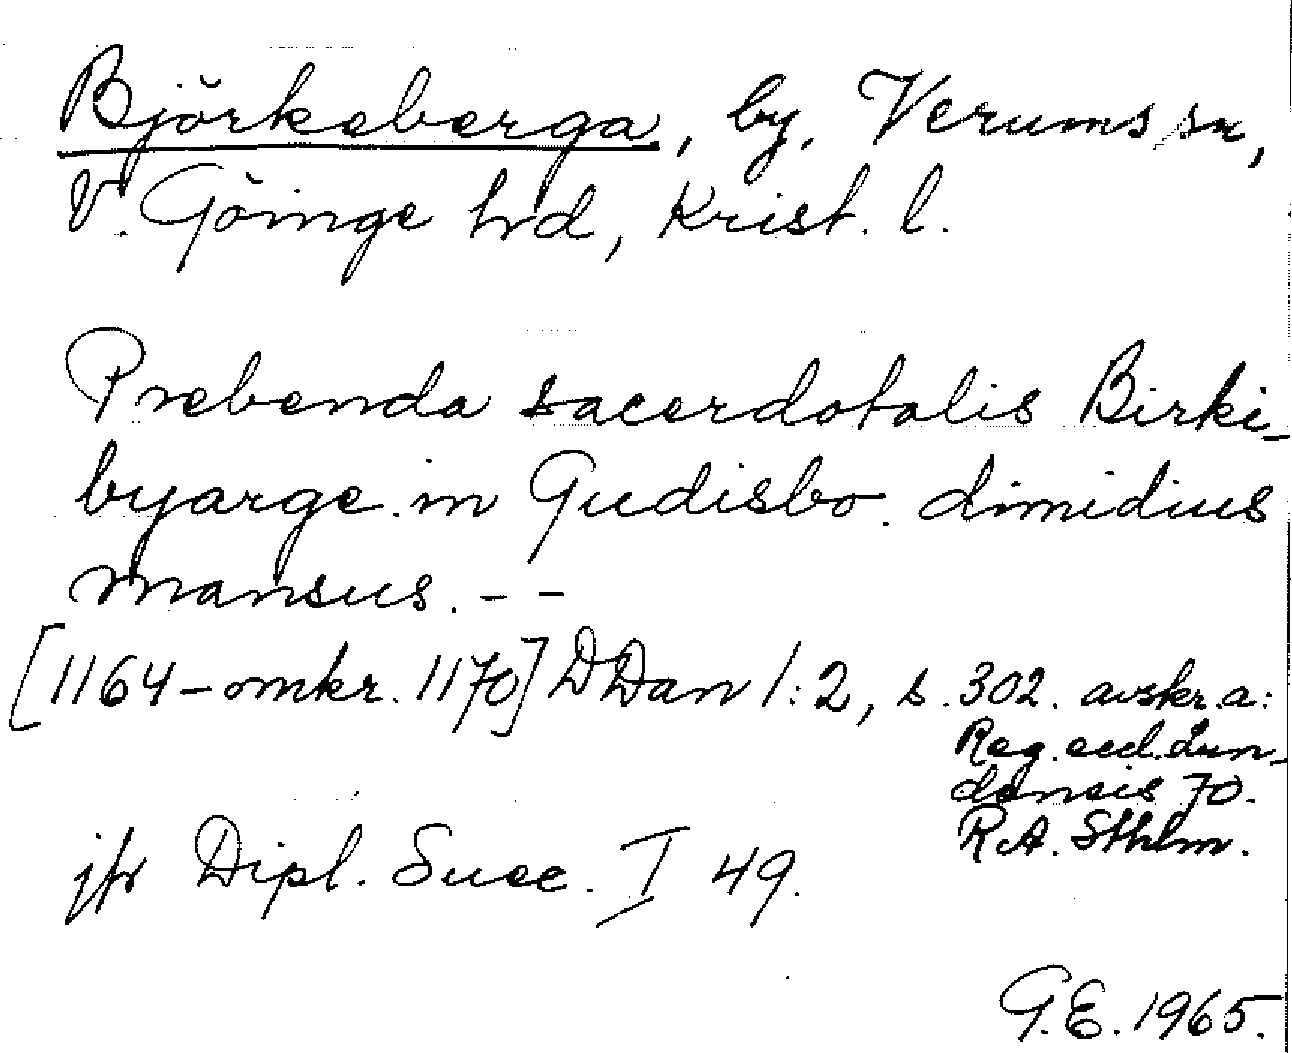 Björkeberga, by, Verums sn,
V. Göinge hrd, Krist. l.
Prebenda sacerdotalis Birki-
byarge in Gudisbo. dimidius
mansus. - -
[1164-omkr. 1170] DDan 1:2, s. 302. avskr. a:
Reg. eccl. Lun-
densis 70.
R.A. Sthlm.
jfr Dipl. Suec. I 49.
G.E. 1965.